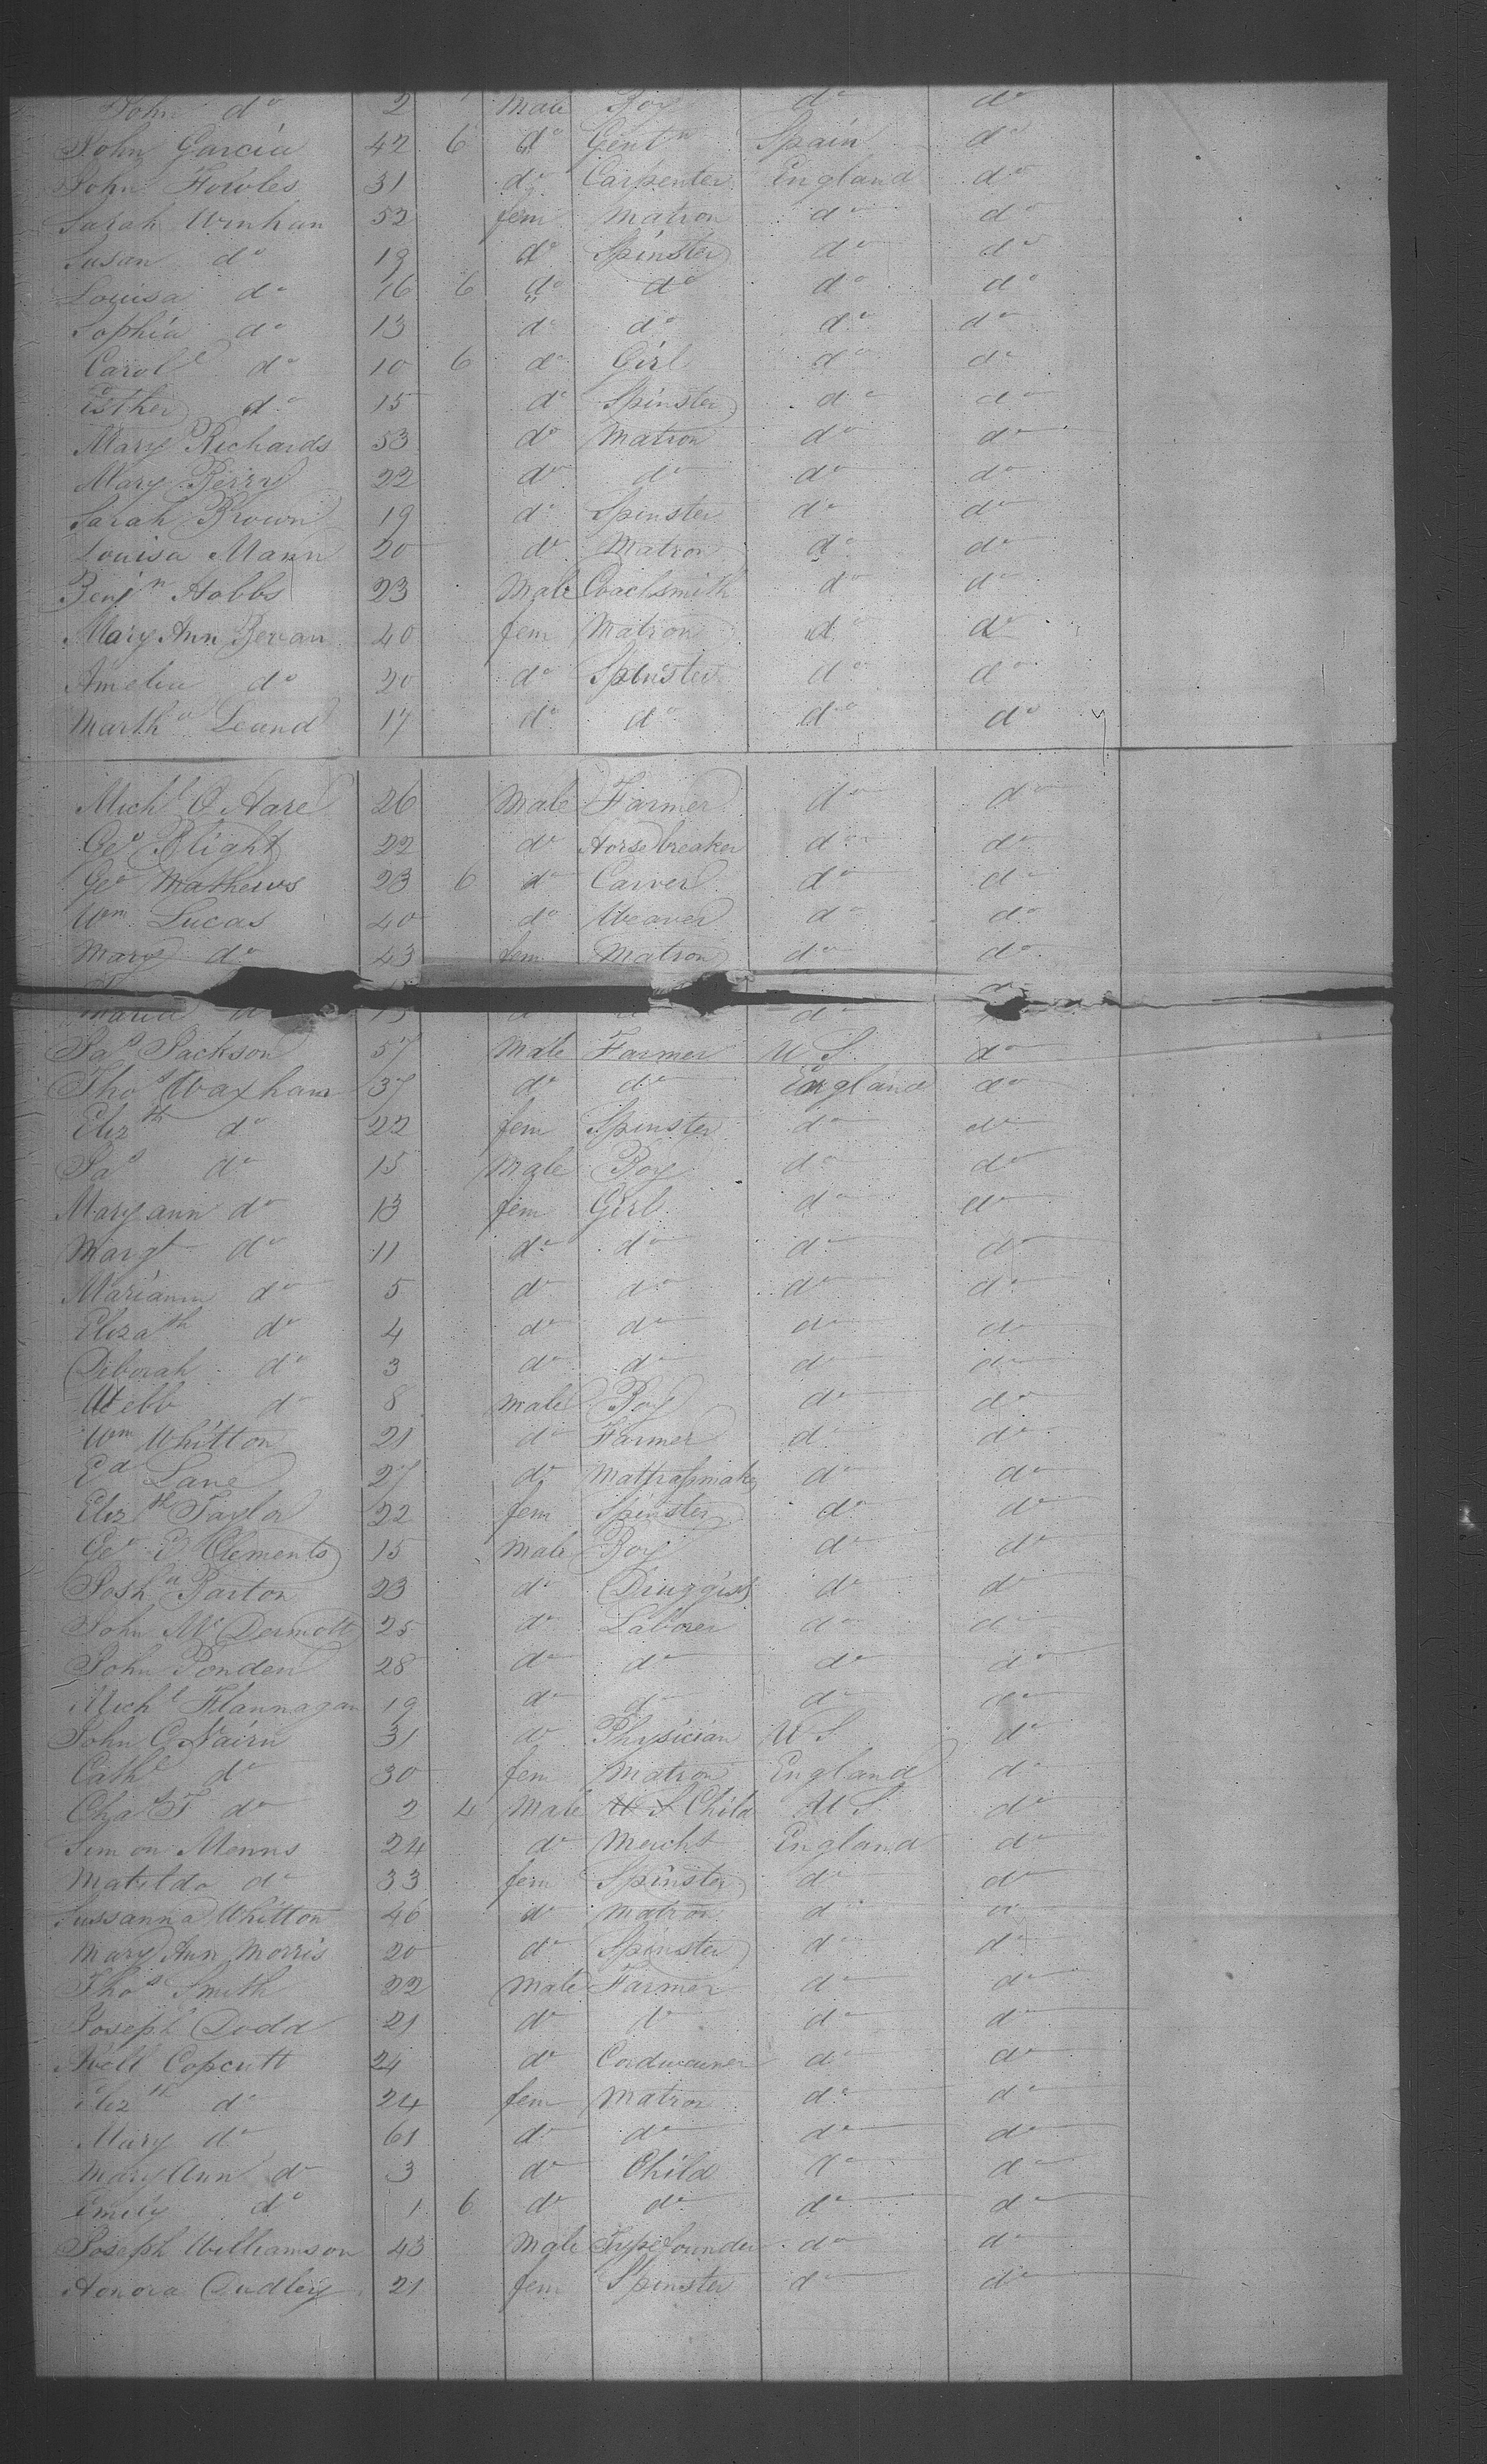 John do 2 Male Boy do do
John Garcia 42 6 do Gentn Spain do
John Fowles 31 do Carpenter England do
Sarah Winhan 52 fem Matron do do
Susan do 19 do Spinster do do
Louisa do 16 6 do do do do
Sophia do 13 do do do do
Carole do 10 6 do Girl do do
Esther do 15 do Spinster do do
Mary Richards 53 do Matron do do
Mary Berry 22 do do do do
Sarah Brown 19 do Spinster do do
Louisa Mann 20 do Matron do do
Benjn Hobbs 23 Male Coachsmith do do
Mary Ann Bevan 40 fem Matron do do
Amelia do 20 do Spinster do do
Martha Leand 17 do do do do
Michl O Hare 26 Male Farmer do do
Geo Blight 22 do Horsebreaker do do
Geo Mathews 23 6 do Carver do do
Wm Lucas 40 do Weaver do do
Mary do 43 fem Matron do do
do
Maria do 13 do do do
Jas Jackson 57 Male Farmer U S do
Thos Waxham 37 do do England do
Elizth do 22 fem Spinster do do
Jas do 15 Male Boy do do
Maryann do 13 fem Girl do do
Margt do 11 do do do do
Mariann do 5 do do do do
Elizath do 4 do do do do
Deborah do 3 do do do do
Webb do 8 male Boy do do
Wm Whitton 21 do Farmer do do
Ed Lane 27 do Mattrassmaker do do
Elizth Taylor 22 fem Spinster do do
Geo P Clements 15 Male Boy do do
Josha Barton 23 do Druggist do do
John McDermott 25 do Laborer do do
John Ponden 28 do do do do
Michl Flannagan 19 do do do do
John C Nairn 31 do Physician U S do
Cathe do 30 fem Matron England do
Chas F do 2 4 Male U S Child U S do
Simon Menns 24 do Mercht England do
Matilda do 33 fem Spinster do do
Sussanna Whitton 46 do Matron do do
Mary Ann Morris 20 do Spinster do do
Thos Smith 22 Male Farmer do do
Joseph Dodd 21 do do do do
Copcutt 24 do Corduwainer do do
Elizth do 24 fem Matron do do
Mary do 61 do do do do
Mary Ann do 3 do Child do do
Emily do 1 6 do do do do
Joseph Williamson 43 Male Typefounder do do
Honora Dudley 21 fem Spinster do do